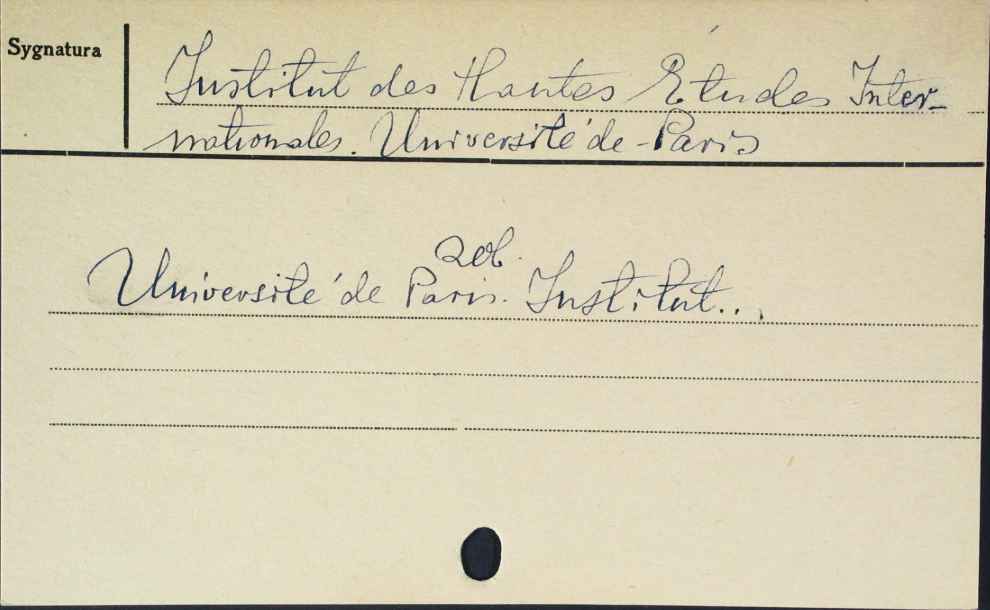 Sygnatura
Institut des Hautes Études Inter-
nationales. Université de Paris
zob.
Université de Paris. Institut...